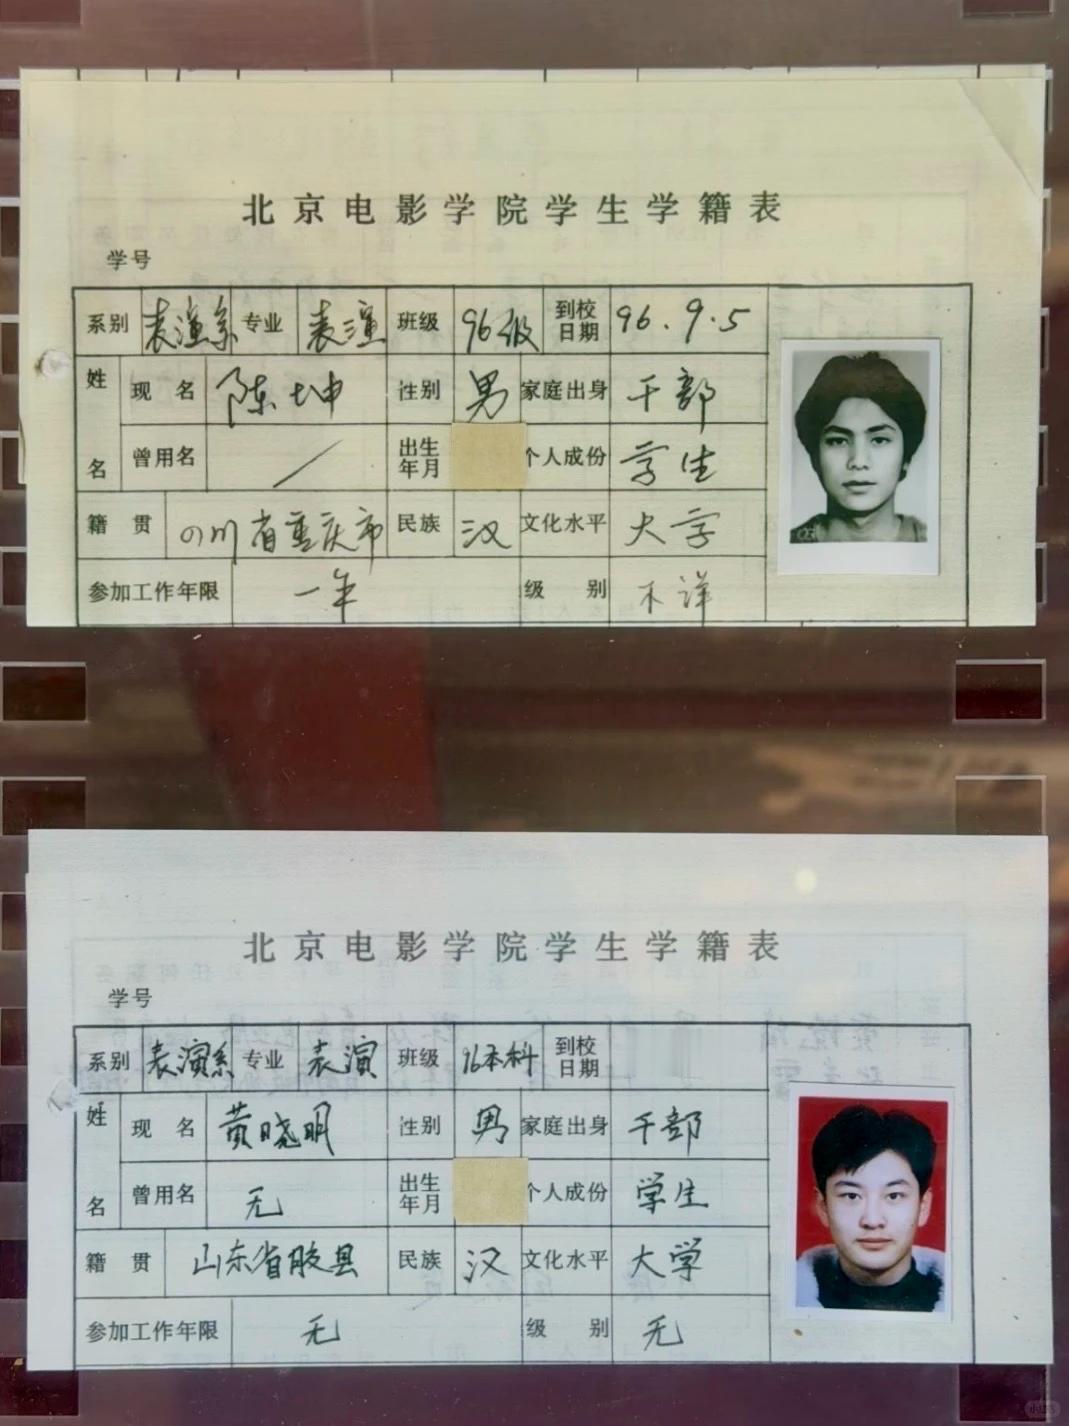 北京电影学院学生学籍表
学号
系别 表演系 专业 表演 班级 96级 到校日期 96.9.5
姓名 现名 陈坤 性别 男 家庭出身 干部
曾用名 / 出生年月 个人成份 学生
籍贯 四川省重庆市 民族 汉 文化水平 大学
参加工作年限 一年 级别 不详
北京电影学院学生学籍表
学号
系别 表演系 专业 表演 班级 96本科 到校日期
姓名 现名 黄晓明 性别 男 家庭出身 干部
曾用名 无 出生年月 个人成份 学生
籍贯 山东省胶县 民族 汉 文化水平 大学
参加工作年限 无 级别 无